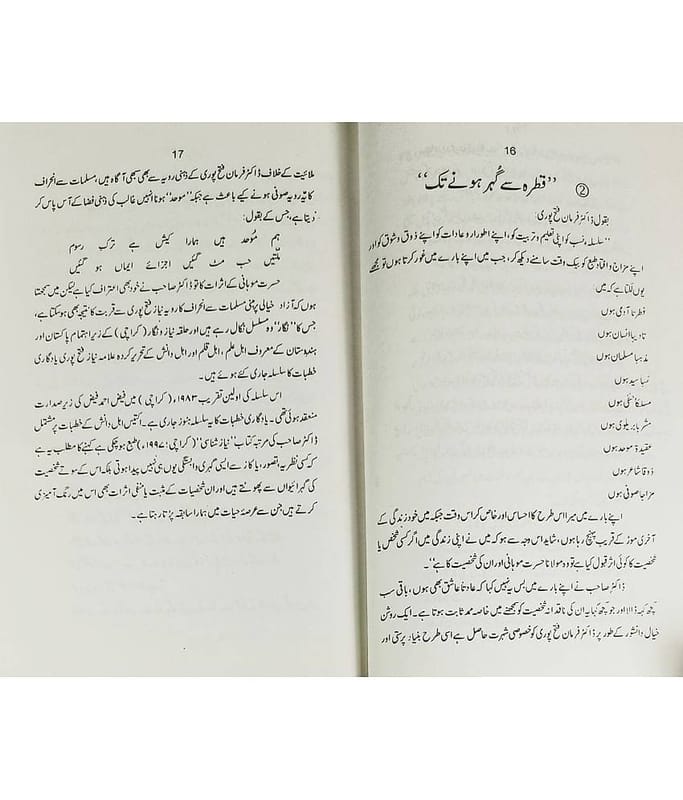 16
② ”قطرہ سے گہر ہونے تک“
بقول ڈاکٹر فرمان فتح پوری:
”سلسلہ نسب کو اپنی تعلیم و تربیت کو، اپنے اطوار و عادات کو اپنے ذوق و شوق کو اور
اپنے مزاج و افتاد طبع کو بیک وقت سامنے دیکھ کر، جب میں اپنے بارے میں غور کرتا ہوں تو مجھے
یوں لگتا ہے کہ میں:
فطرتاً آدمی ہوں
تادیباً انسان ہوں
مذہباً مسلمان ہوں
نسباً سید ہوں
مسلکاً سنّی ہوں
مشرباً بریلوی ہوں
عقیدۃً موحد ہوں
ذوقاً شاعر ہوں
مزاجاً صوفی ہوں
اپنے بارے میں میرا اس طرح کا احساس اور خاص کر اس وقت جبکہ میں خود زندگی کے
آخری موڑ کے قریب پہنچ رہا ہوں، شاید اس وجہ سے ہو کہ میں نے اپنی زندگی میں اگر کسی شخص یا
شخصیت کا کوئی اثر قبول کیا ہے تو وہ مولانا حسرت موہانی اور ان کی شخصیت کا ہے“۔
ڈاکٹر صاحب نے اپنے بارے میں بس یہ نہیں کہا کہ عادتاً عاشق بھی ہوں، باقی سب
کچھ کہہ ڈالا اور جو کچھ کہا یہ ان کی ناقدانہ شخصیت کو سمجھنے میں خاصہ ممد ثابت ہوتا ہے۔ ایک روشن
خیال دانشور کے طور پر ڈاکٹر فرمان فتح پوری کو خصوصی شہرت حاصل ہے اسی طرح بنیاد پرستی اور
17
ملائیت کے خلاف ڈاکٹر فرمان فتح پوری کے ذہنی رویہ سے بھی سبھی آگاہ ہیں، مسلمات سے انحراف
کا یہ رویہ صوفی ہونے کیسے باعث ہے جبکہ ”موحد“ ہونا انہیں غالب کی ذہنی فضا کے آس پاس کر
دیتا ہے، جس کے بقول:
ہم مُوحد ہیں ہمارا کیش ہے ترکِ رسوم
ملّتیں جب مٹ گئیں اجزائے ایماں ہو گئیں
حسرت موہانی کے اثرات کا تو ڈاکٹر صاحب نے خود بھی اعتراف کیا ہے لیکن میں سمجھتا
ہوں کہ آزاد خیالی پر مبنی مسلمات سے انحراف کا رویہ نیاز فتح پوری سے قربت کا نتیجہ بھی ہو سکتا ہے،
جس کا ”نگار“ وہ مسلسل نکال رہے ہیں اور حلقہ نیاز و نگار (کراچی) کے زیر اہتمام پاکستان اور
ہندوستان کے معروف اہل علم، اہل قلم اور اہل دانش کے تحریر کردہ علامہ نیاز فتح پوری یادگاری
خطبات کا سلسلہ جاری کئے ہوئے ہیں۔
اس سلسلہ کی اولین تقریب ۱۹۸۳ء (کراچی) میں فیض احمد فیض کی زیر صدارت
منعقد ہوئی تھی۔ یادگاری خطبات کا یہ سلسلہ ہنوز جاری ہے۔ اکتیس اہل دانش کے خطبات پر مشتمل
ڈاکٹر صاحب کی مرتبہ کتاب ”نیاز شناسی“ (کراچی: ۱۹۹۷ء) طبع ہو چکی ہے کہنے کا مطلب یہ ہے
کہ کسی نظریہ، تصور، یا کاز سے ایسی گہری وابستگی یوں ہی نہیں پیدا ہوتی بلکہ اس کے سوتے شخصیت
کی گہرائیوں سے پھوٹتے ہیں اور ان شخصیات کے مثبت یا منفی اثرات بھی اس میں رنگ آمیزی
کرتے ہیں جن سے عرصۂ حیات میں ہمارا سابقہ پڑتا رہتا ہے۔